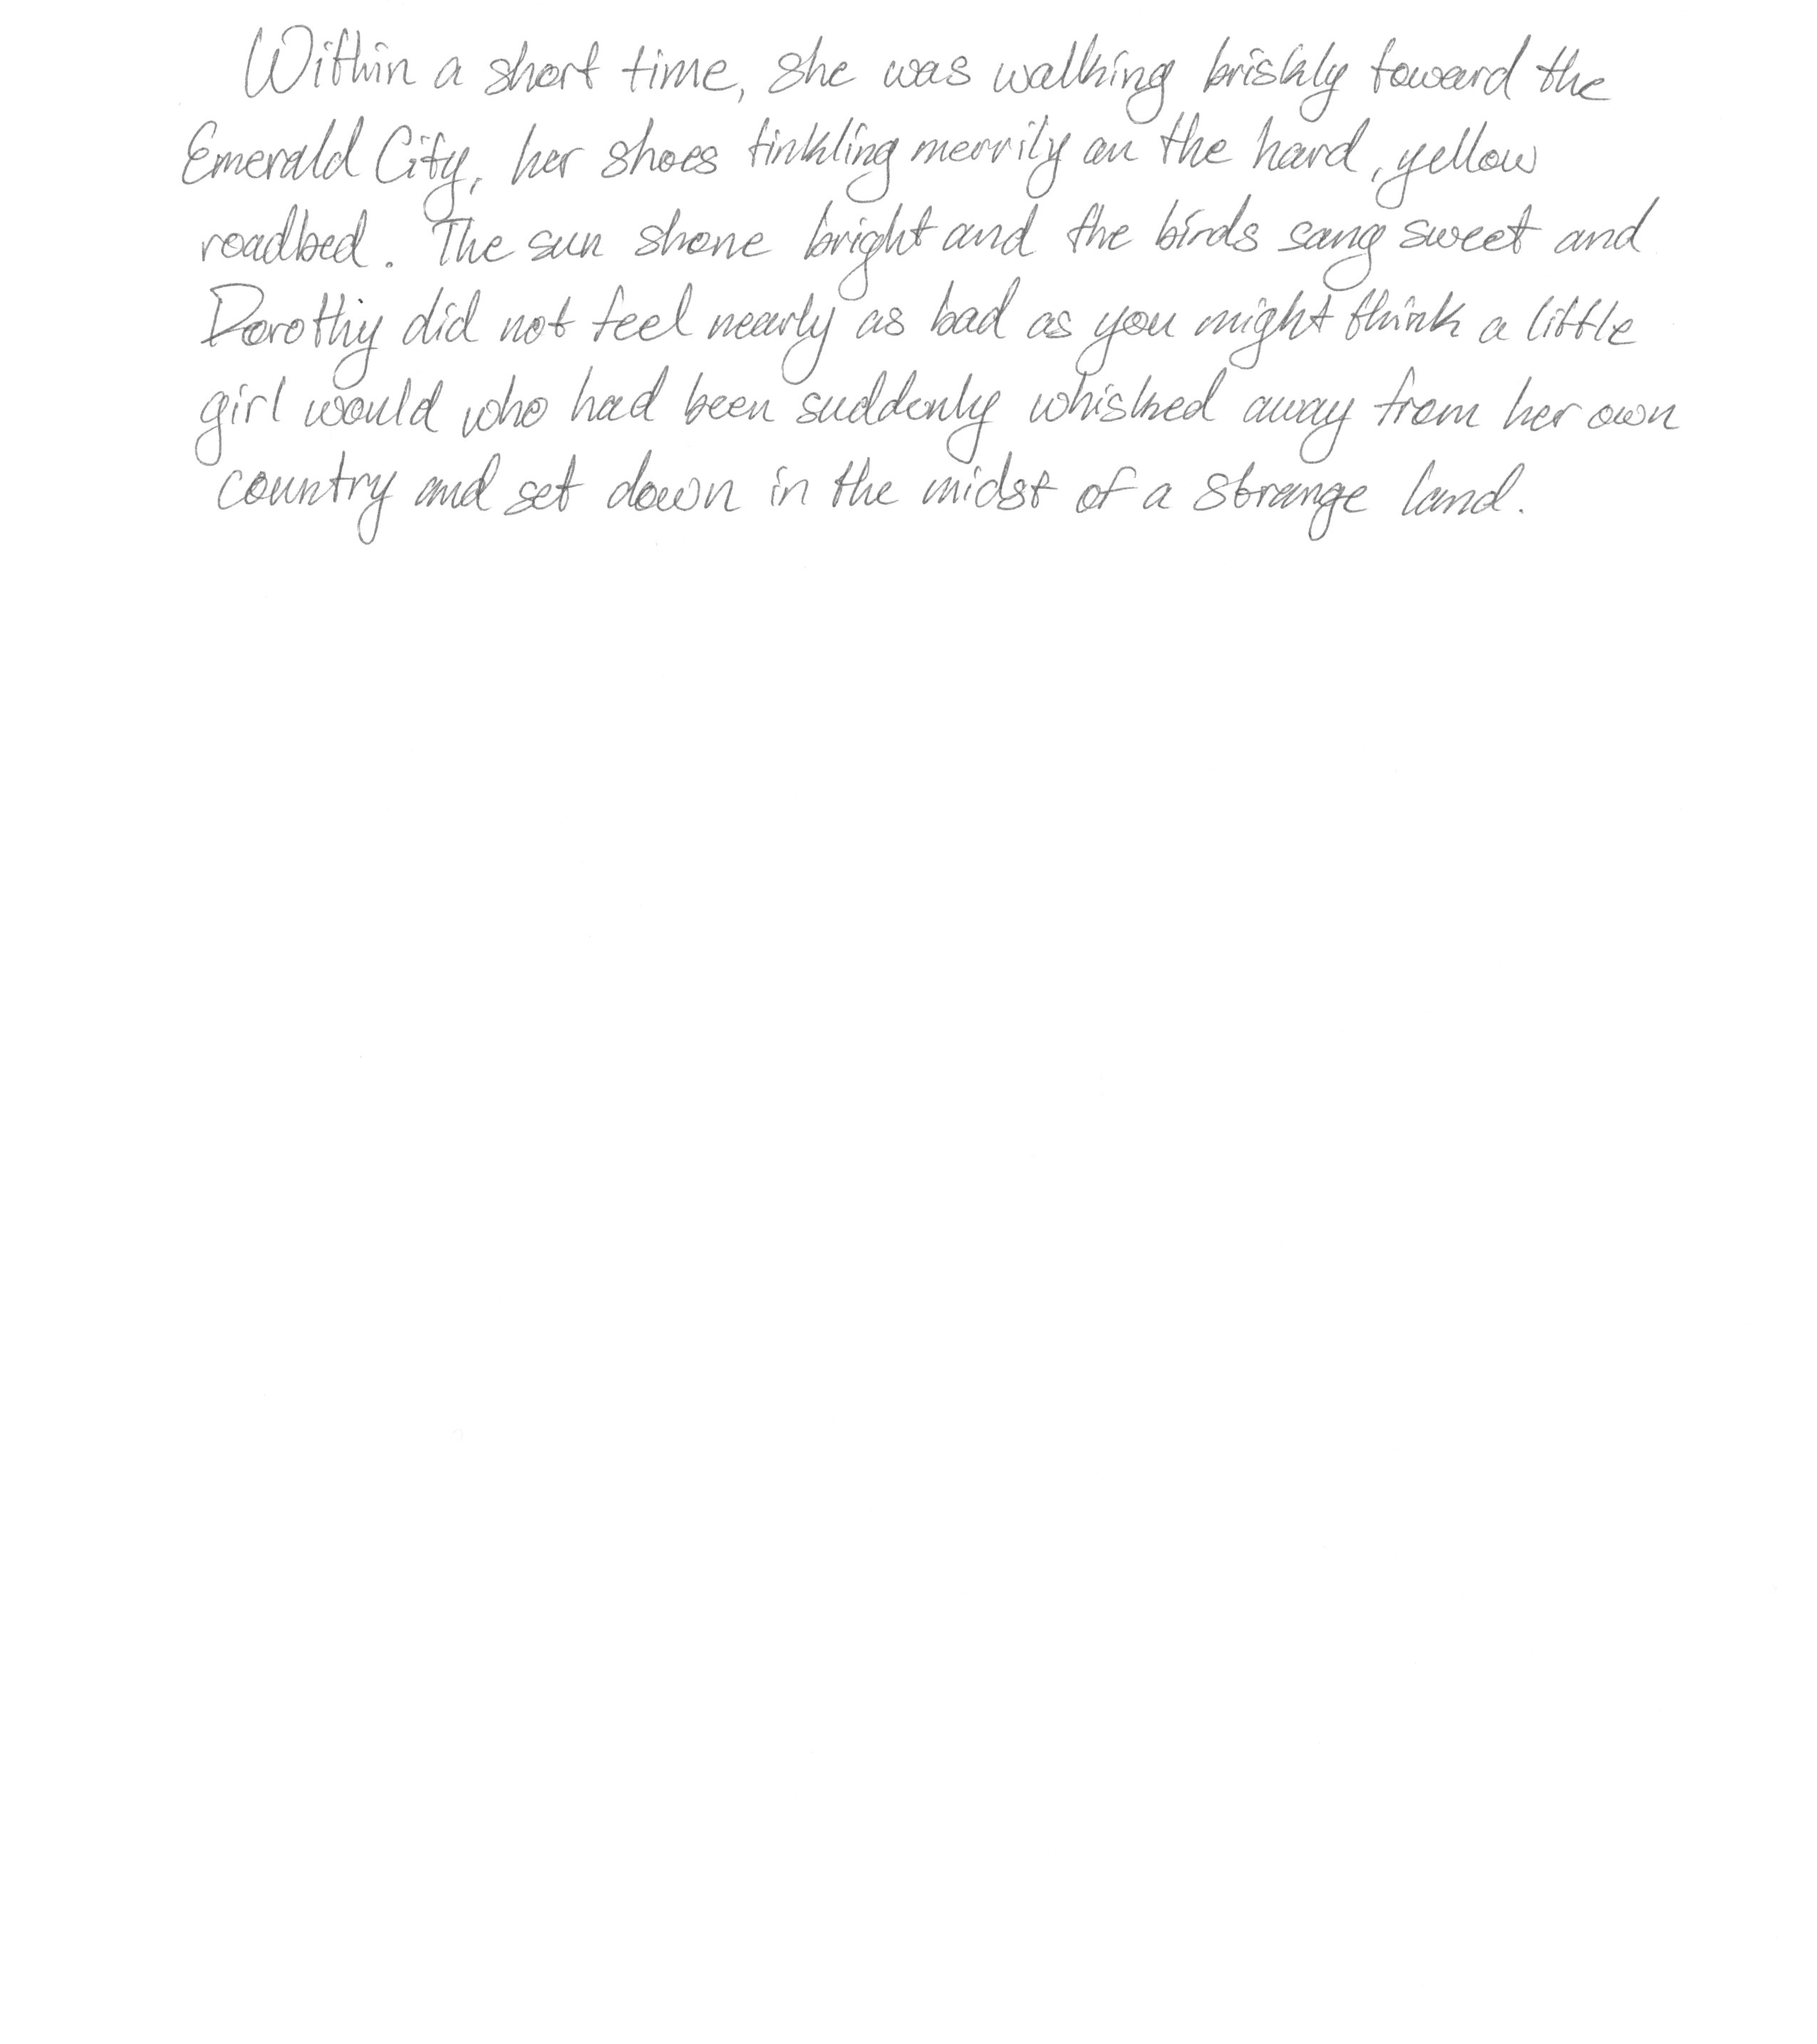 Within a short time, she was walking briskly toward the
Emerald City, her shoes tinkling merrily on the hard, yellow
roadbed. The sun shone bright and the birds sang sweet and
Dorothy did not feel nearly as bad as you might think a little
girl would who had been suddenly whisked away from her own
country and set down in the midst of a strange land.